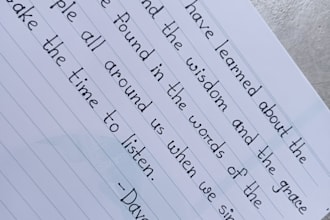 have learned about the
nd the wisdom and the grace
found in the words of the
ple all around us when we si
ake the time to listen.
--Dav